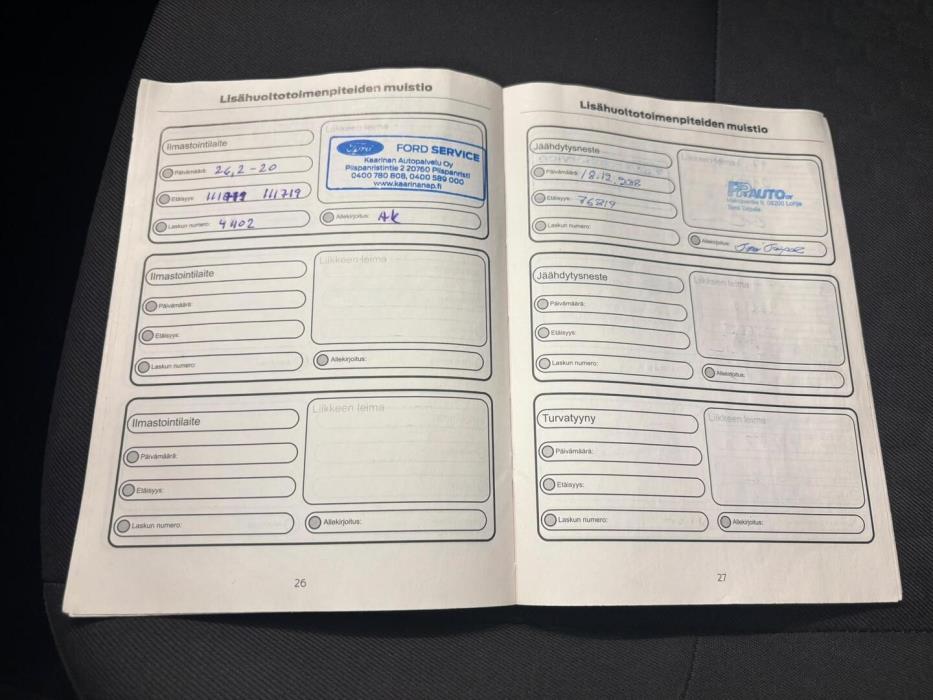 Lisähuoltotoimenpiteiden muistio
Ilmastointilaite
Päivämäärä: 26,2-20
Etäisyys: 111719
Laskun numero: 41102
Liikkeen leima
Ford
FORD SERVICE
Kaarinan Autopalvelu Oy
Piispanristintie 2 20760 Piispanristi
0400 780 808, 0400 589 000
www.kaarinanap.fi
Allekirjoitus: AK
Ilmastointilaite
Päivämäärä:
Etäisyys:
Laskun numero:
Liikkeen leima
Allekirjoitus:
Ilmastointilaite
Päivämäärä:
Etäisyys:
Laskun numero:
Liikkeen leima
Allekirjoitus:
26
Lisähuoltotoimenpiteiden muistio
Jäähdytysneste
Päivämäärä: 18.12.
Etäisyys: 76819
Laskun numero:
Liikkeen leima
AUTO OY
08200 Lohja
Allekirjoitus:
Jäähdytysneste
Päivämäärä:
Etäisyys:
Laskun numero:
Liikkeen leima
Allekirjoitus:
Turvatyyny
Päivämäärä:
Etäisyys:
Laskun numero:
Liikkeen leima
Allekirjoitus:
27